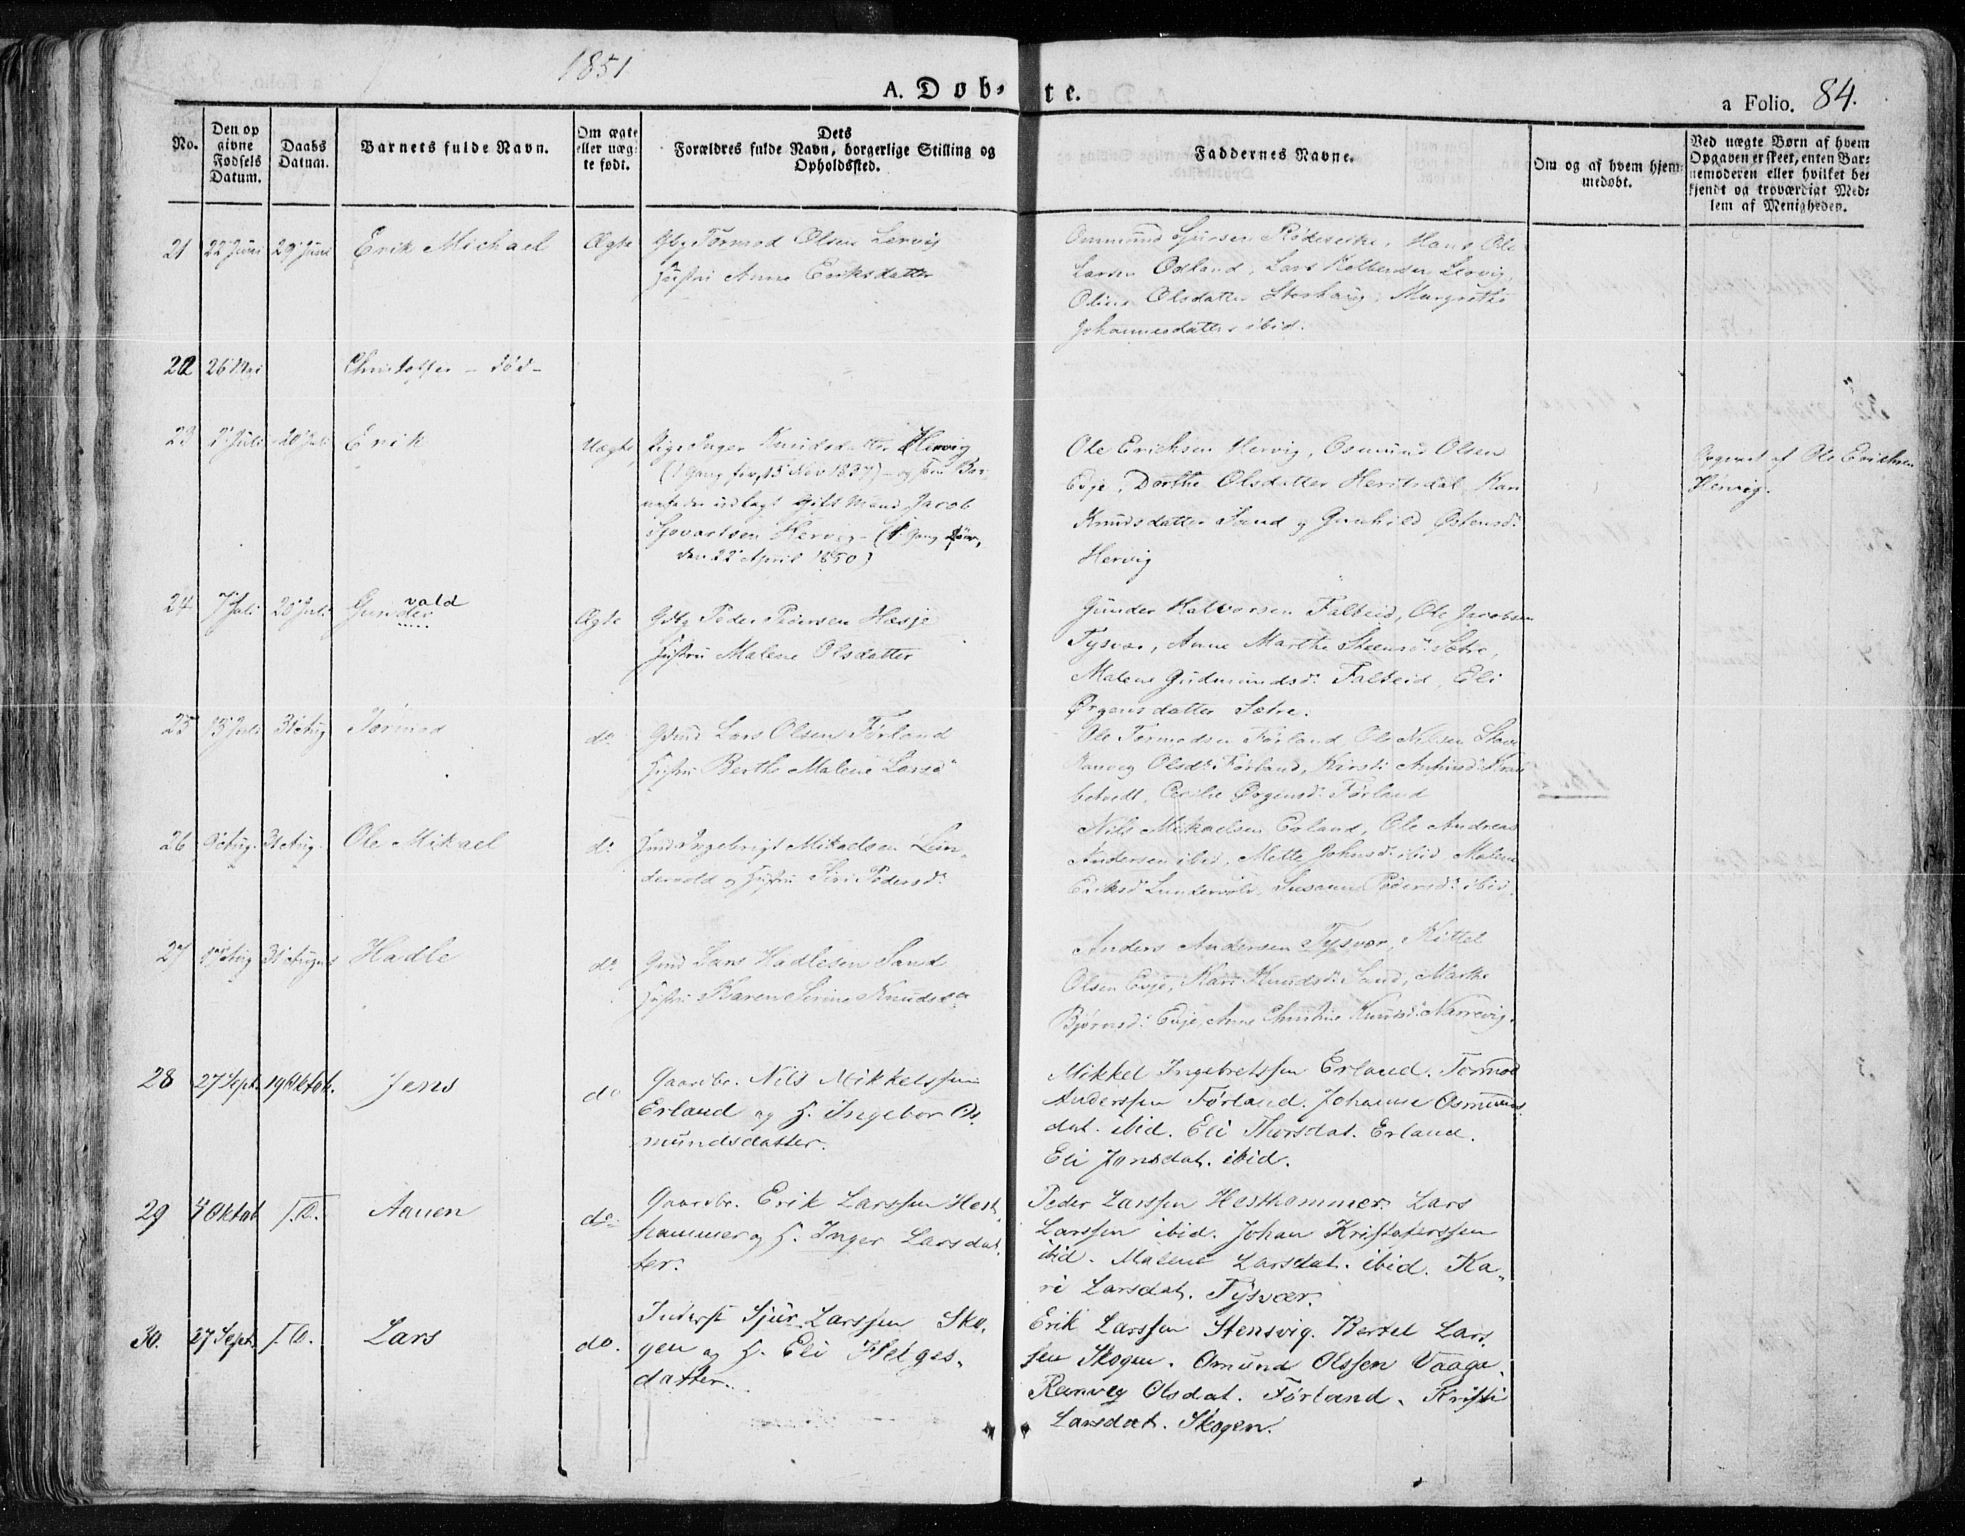 1851
A. Døb- te.
a Folio. 84.
No.
Den op
givne
Fødsels
Datum.
Daabs
Datum.
Barnets fulde Navn.
Om ægte
eller uæg-
te født.
Dets
Forældres fulde Navn, borgerlige Stilling og
Opholdssted.
Faddernes Navne.
Om og af hvem hjem-
medøbt.
Ved uægte Børn af hvem
Opgaven er skeet, enten Bar-
nemoderen eller hvilket be-
kjendt og troværdigt Med-
lem af Menigheden.
21 22 Juni 29 Juni Erik Michael Ægte Gbr Tormod Olsen Lervig
Hustru Anne Eriksdatter
Ommund Sjursen Hans Ole
Larsen Odland, Lars Lervig,
Olsdatter Storhaug, Margrethe
Johannesdatter ibid.
22 26 Mai Christoffer - død -
23 Juli 20 Juli Erik Uægte, Pige Inger Knudsdatter Hervig
(1 Gang 15 Nov 1837) - og som Bar-
nefader udlagt gift Mand Jacob
Hervig - (1 Gang
den 22 April 1850)
Ole Ericksen Hervig, Osmund Olsen
Evje, Dorthe Olsdatter Kari
Knudsdatter Sand og Gunhild Østensd.
Hervig
Opgivet af Ole Erichsen
Hervig.
24 7 Juli 20 Juli Gunder
vald
Ægte Gbr Peder Hesje
Hustru Malene Olsdatter
Gunder Halvorsen Falkeid, Ole Jacobsen
Tysvær, Anne Marthe Steensd. Sætre,
Malene Gudmundsd. Falkeid, Eli
Ørgensdatter Sætre.
25 13 Juli 31 Aug Tormod do. Lars Olsen Førland
Hustru Berthe Malene Larsd.
Ole Tormodsen Førland, Ole Nilsen
Ranveg Olsd. Førland, Kirsti
Cecilie Ørgensd. Førland
26 Aug. 31 Aug. Ole Mikael do. Ingebrigt Mikaelsen Lun-
dervold og Hustru Siri Pedersd.
Nils Mikaelsen Erland, Ole Andreas
Andersen ibid, Mette Johnsd. ibid, Malene
Eriksd. Lundervold, Susanne Pedersd. ibid.
27 Aug 31 August Hadle do. Lars Hadlesen Sand
Hustru Karen Serine Knudsd.
Anders Andersen Tysvær, Kittel
Olsen Evje, Kari Knudsd. Sand, Marthe
Bjørnsd. Evje, Anne Christine Knudsd.
28 27 Sept. 19 Oktob. Jens do Gaardbr. Nils Mikkelssen
Erland og H. Ingebor Os-
mundsdatter.
Mikkel Ingebretssen Erland. Tormod
Anderssen Førland. Johanne Osmunds
dat. ibid. Eli Thorsdat. Erland.
Eli Jonsdat. ibid.
29 4 Oktob f.D. Aanen do. Gaardbr. Erik Larssen Hest-
hammer og H. Inger Larsdat-
ter.
Peder Larssen Hesthammer. Lars
Larssen ibid. Johan Kristoferssen
ibid. Malene Larsdat. ibid. Ka-
ri Larsdat. Tysvær.
30. 27 Sept. f.D. Lars do. Inderst Sjur Larssen Sko-
gen og H. Eli Helges-
datter.
Erik Larssen Stensvig. Bertel Lars-
sen Skogen. Omund Olssen Vaage.
Ranveg Olsdat. Førland. Kristi
Larsdat. Skogen.